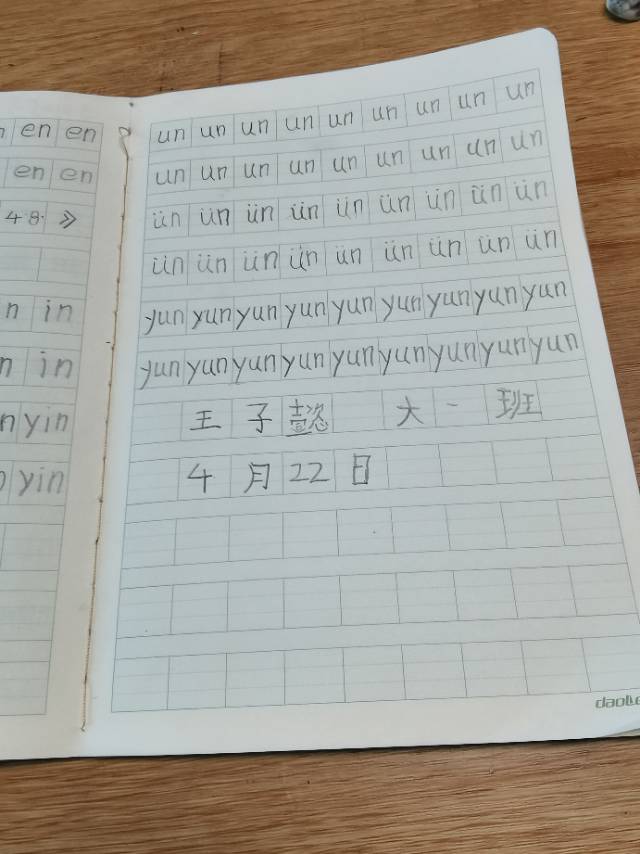 en en
en en
48. 》
in
in
yin
yin
un un un un un un un un un
un un un un un un un un un
ün ün ün ün ün ün ün ün ün
ün ün ün ün ün ün ün ün ün
yun yun yun yun yun yun yun yun yun
yun yun yun yun yun yun yun yun yun
王子懿 大一班
4月22日